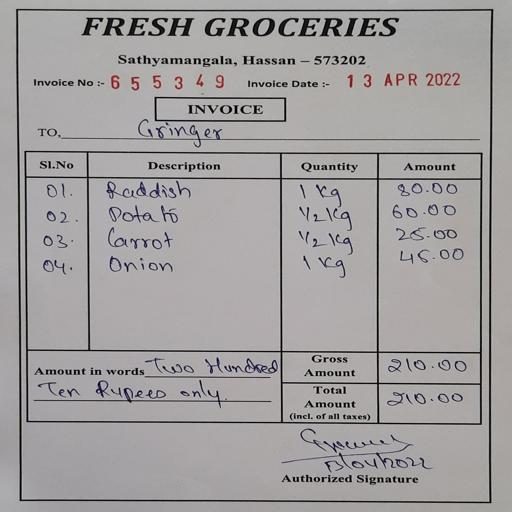 FRESH GROCERIES
Sathyamangala, Hassan – 573202
Invoice No :- 655349 Invoice Date :- 13 APR 2022
INVOICE
TO, Gringer
Sl.No Description Quantity Amount
01. Raddish 1 kg 80.00
02. Potato 1/2 kg 60.00
03. Carrot 1/2 kg 25.00
04. Onion 1 kg 45.00
Amount in words Two Hundred
Ten Rupees only.
Gross Amount 210.00
Total Amount (incl. of all taxes) 210.00
13/04/2022
Authorized Signature